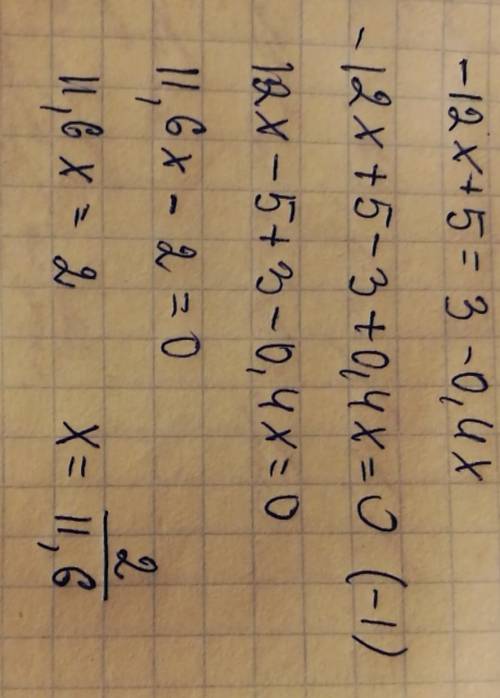 -12x+5=3-0,4x
-12x+5-3+0,4x=0 (-1)
12x-5+3-0,4x=0
11,6x-2=0
11,6x=2 x=2/11,6